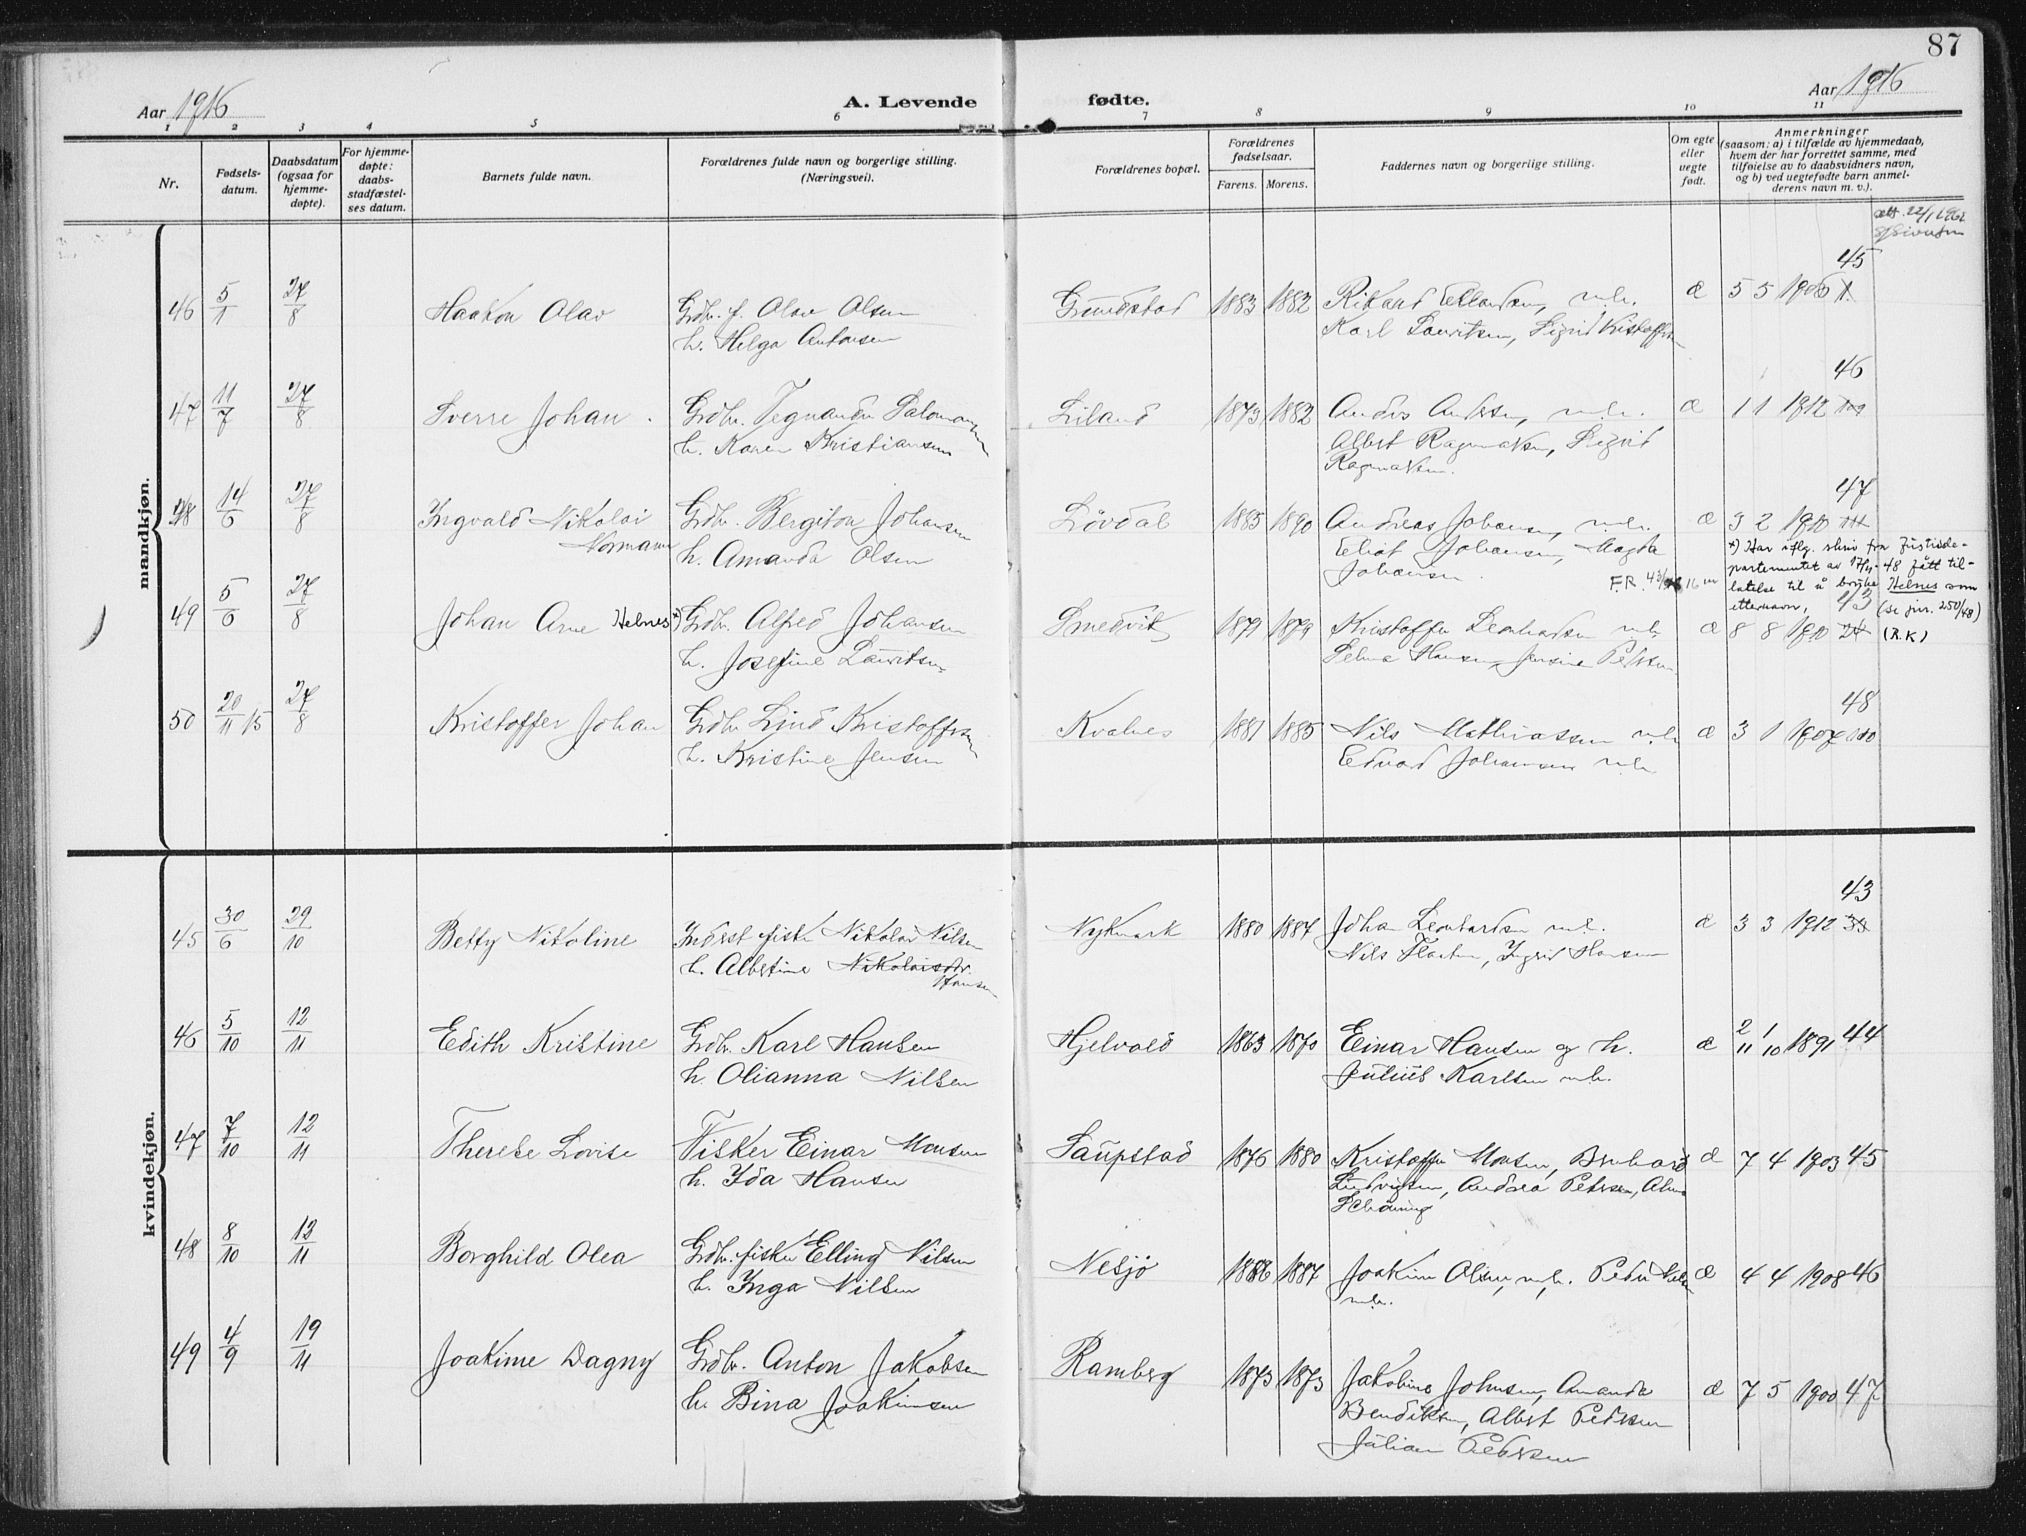 87
Aar 1916
A. Levende
fødte.
Aar 1916
1 2 3 4 5 6 7 8 9 10 11
Nr.
Fødsels-
datum.
Daabsdatum
(ogsaa for
hjemme-
døpte).
For hjemme-
døpte:
daabs-
stadfæstel-
ses datum.
Barnets fulde navn.
Forældrenes fulde navn og borgerlige stilling.
(Næringsvei).
Forældrenes bopæl.
Forældrenes
fødselsaar.
Farens. Morens.
Faddernes navn og borgerlige stilling.
Om egte
eller
uegte
født.
Anmerkninger
(saasom: a) i tilfælde av hjemmedaab,
hvem der har forrettet samme, med
tilføielse av to daabsvidners navn,
og b) ved uegtefødte barn anmel-
derens navn m. v.).
mandkjøn.
45
46 5/1 27/8 Haakon Olav Grdbr. f. Olav Olsen Grundstad 1883 1882 Rikard Ellansen, m.h. æ 5 5 1906
h. Helga Antonsen Karl Lauritsen, Sigrid Kristoffersen
46
47 11/7 27/8 Sverre Johan Grdbr. Tegnander Salomonsen Liland 1873 1882 Anders Andersen, m.h. æ 1 1 1912
h. Karen Kristiansen Albert Ragnvaldsen, Sigrid
47
48 14/6 27/8 Ingvald Nikolai Grdbr. Bergiton Johansen Løvdal 1885 1890 Andreas Johansen, m.h. æ 3 2 1910
Normann h. Amanda Olsen Eliot Johansen, Magda
Johansen
*) Har iflg. skriv fra Justisde-
partementet av 17/4-48 fått til-
latelse til å bruke Helnes som
etternavn, (se jnr. 250/48)
49 5/6 27/8 Johan Arne Helnes *) Grdbr. Alfred Johansen Smedvik 1879 1879 Kristoffer Leonhardsen m.h. æ 8 8 1910 (R.K)
h. Josefine Lauritsen Selma Hansen, Jensine Pedersen
48
50 20/11 15 27/8 Kristoffer Johan Grdbr. Lind Kristoffersen Kvalnes 1881 1885 Nils Mathiassen m.h. æ 3 1 1907
h. Kristine Jensen Edvard Johansen m.h.
kvindekjøn.
43
45 30/6 29/10 Betty Nikoline Inderst fisker Nikolai Nilsen Nykmark 1880 1884 Johan Leonhardsen m.h. æ 3 3 1912
h. Albertine Nikolaisdtr. Nils Floaten, Ingrid Hansen
Hansen
46 5/10 12/11 Edith Kristine Grdbr. Karl Hansen Hjelvold 1863 1870 Einar Hansen og h. æ 2/11 1/10 1891 44
h. Olianna Nilsen Julius Karlsen m.h.
47 7/10 12/11 Therese Lovise Fisker Einar Monsen Saupstad 1876 1880 Kristoffer Monsen, Bernhard æ 7 4 1903 45
h. Ida Hansen Ludvigsen, Andrea Petersen, Alma
Schöning
48 8/10 12/11 Borghild Olea Grdbr. fisker Elling Nilsen Nesjö 1886 1887 Joakim Olsen, m.h. Peder Nilsen æ 4 4 1908 46
h. Inga Nilsen m.h.
49 4/9 19/11 Joakime Dagny Grdbr. Anton Jakobsen Ramberg 1873 1873 Jakobine Johnsen, Amanda æ 7 5 1900 47
h. Bina Joakimsen Bendiksen, Albert Pedersen
Julian Pedersen